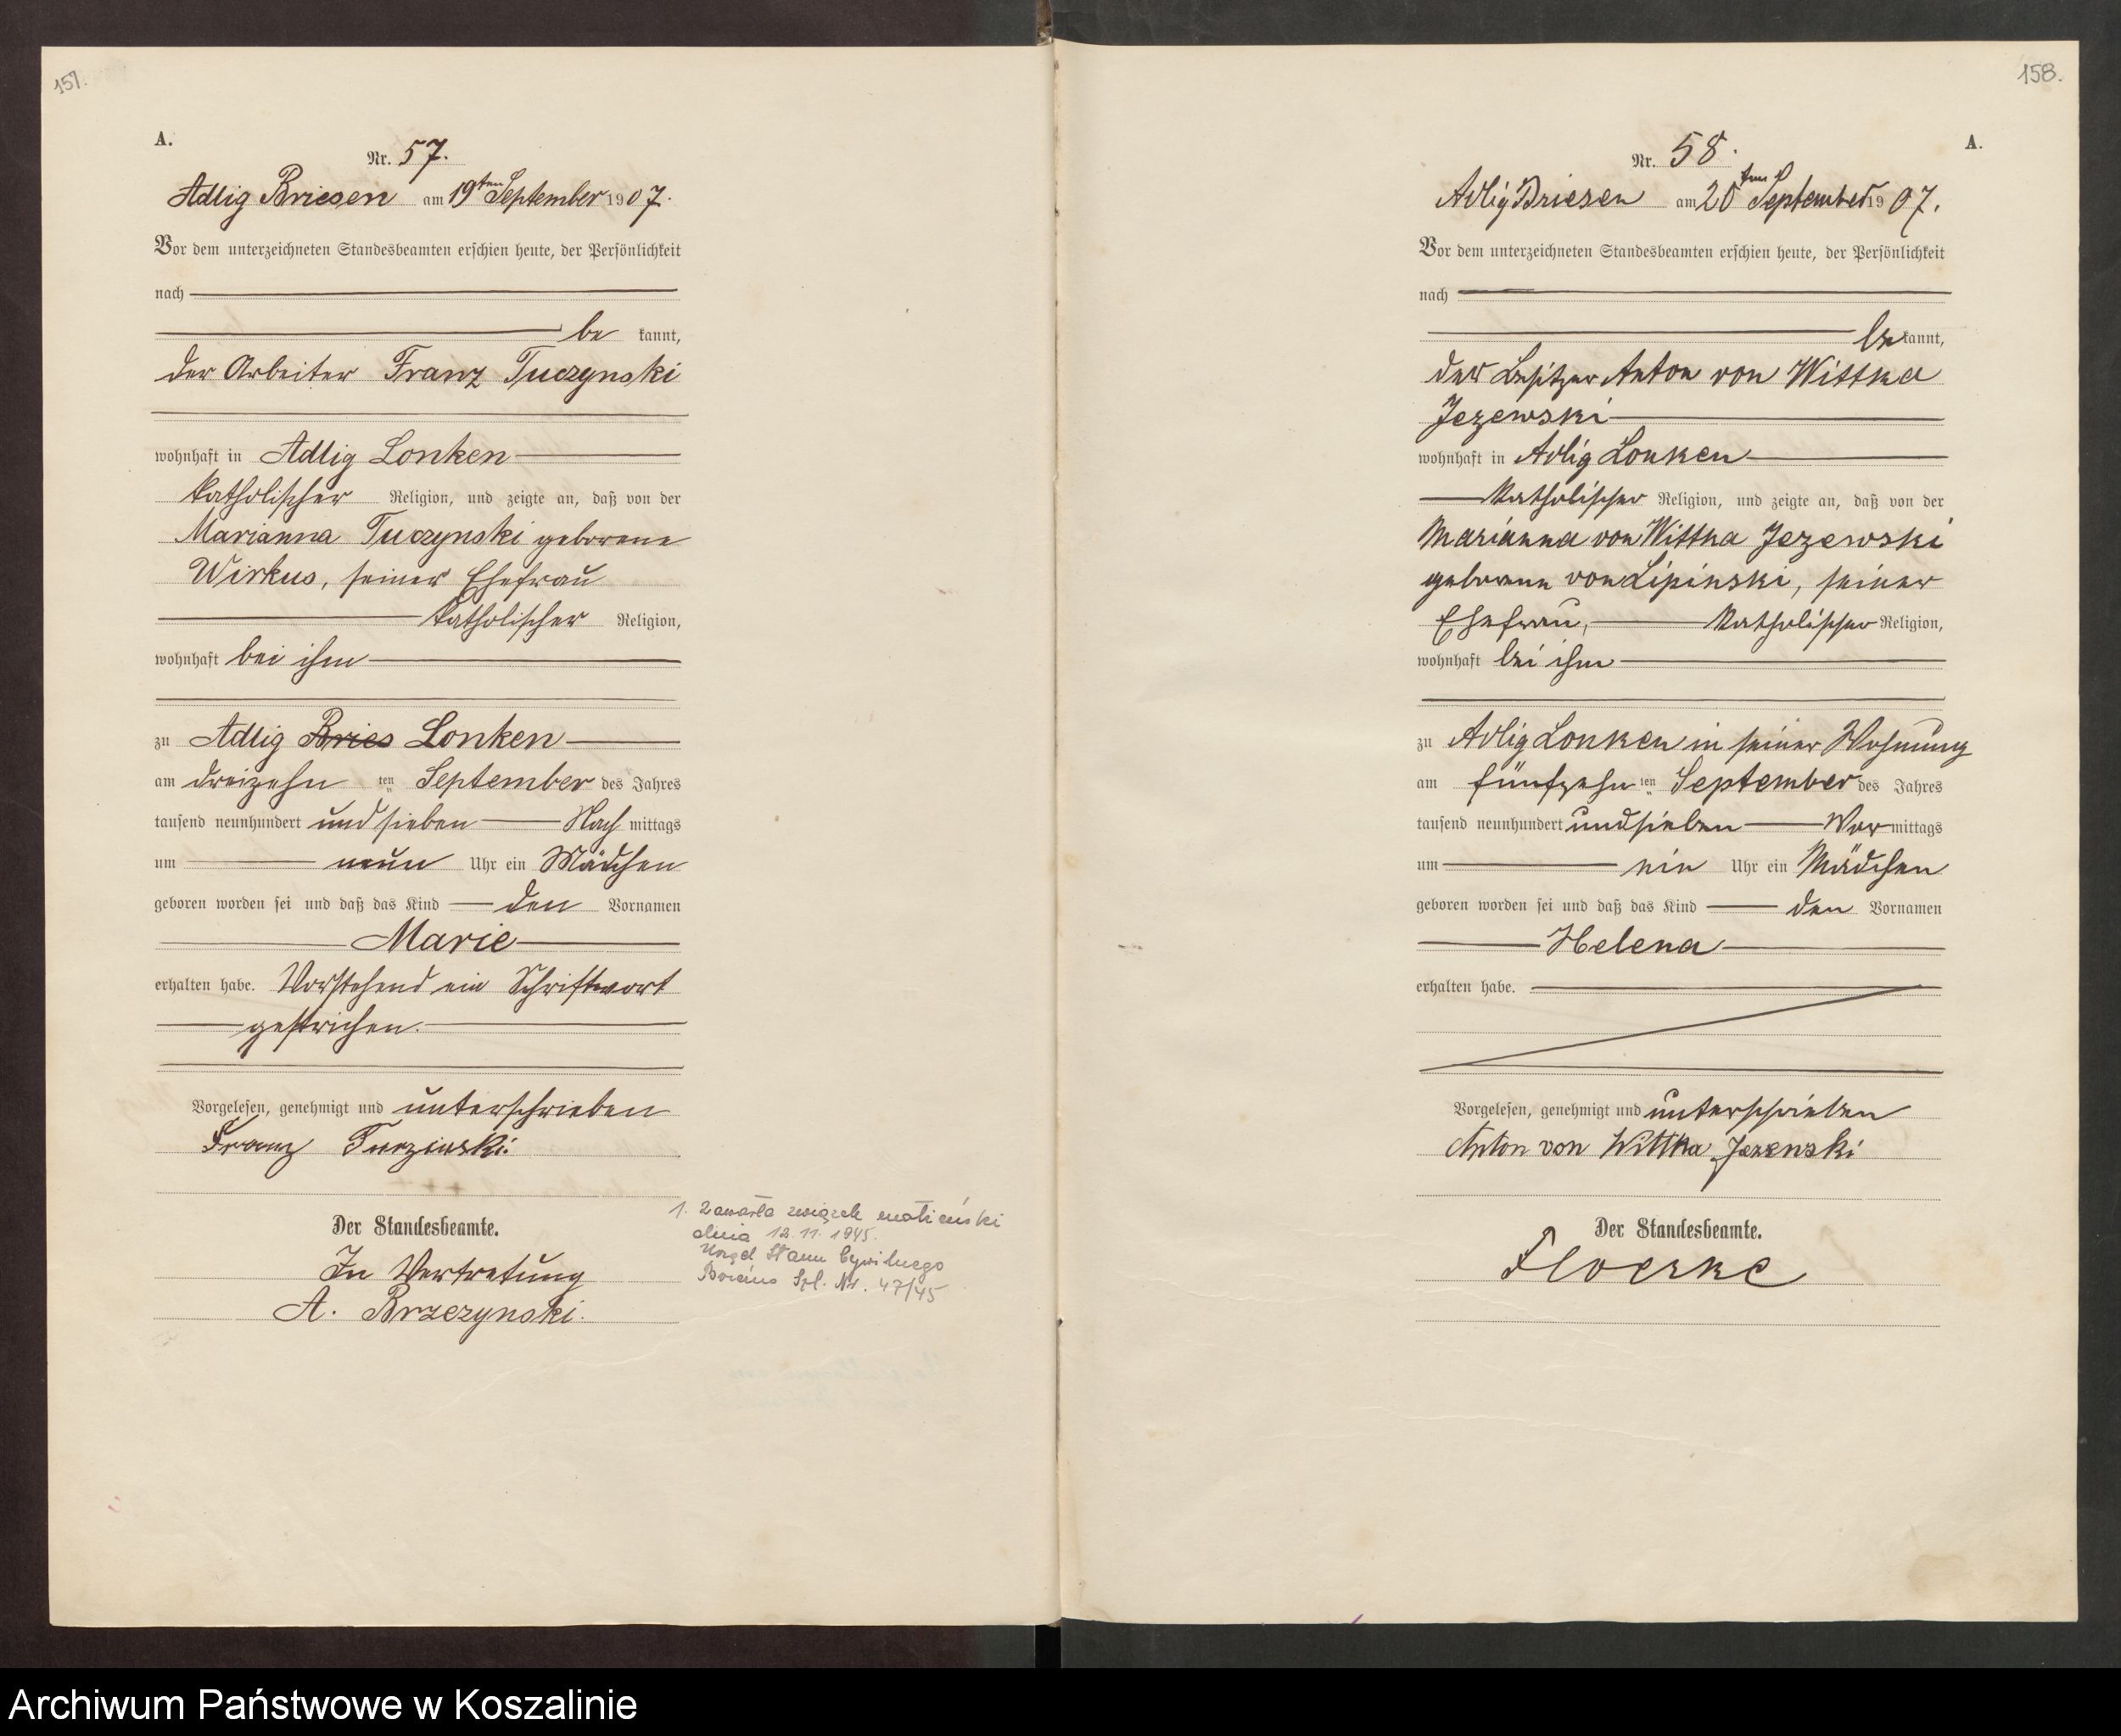 157.
A.
Nr. 57.
Adlig Briesen am 19ten September 1907.
Vor dem unterzeichneten Standesbeamten erschien heute, der Persönlichkeit
nach
be kannt,
der Arbeiter Franz Tuczynski
wohnhaft in Adlig Lonken
katholischer Religion, und zeigte an, daß von der
Marianna Tuczynski geborene
Wirkus, seiner Ehefrau
katholischer Religion,
wohnhaft bei ihm
zu Adlig Bries Lonken
am dreizehn ten September des Jahres
tausend neunhundert und sieben Nach mittags
um neun Uhr ein Mädchen
geboren worden sei und daß das Kind den Vornamen
Marie
erhalten habe. Vorstehend ein Schriftwort
gestrichen.
Vorgelesen, genehmigt und unterschrieben
Franz Turzinski.
Der Standesbeamte.
In Vertretung
A. Brzezynski.
1. Zawarła związek małżeński
dnia 12.11.1945.
Urząd Stanu Cywilnego
Borcius Spl. Nr. 47/45
158.
A.
Nr. 58.
Adlig Briesen am 20ten September 1907.
Vor dem unterzeichneten Standesbeamten erschien heute, der Persönlichkeit
nach
be kannt,
der Besitzer Anton von Wittka
Jezewski
wohnhaft in Adlig Lonken
katholischer Religion, und zeigte an, daß von der
Marianna von Wittka Jezewski
geborene von Lipinski, seiner
Ehefrau, katholischer Religion,
wohnhaft bei ihm
zu Adlig Lonken in seiner Wohnung
am fünfzehn ten September des Jahres
tausend neunhundert und sieben Vor mittags
um ein Uhr ein Mädchen
geboren worden sei und daß das Kind den Vornamen
Helena
erhalten habe.
Vorgelesen, genehmigt und unterschrieben
Anton von Wittka Jezenski
Der Standesbeamte.
Floerke
Archiwum Państwowe w Koszalinie